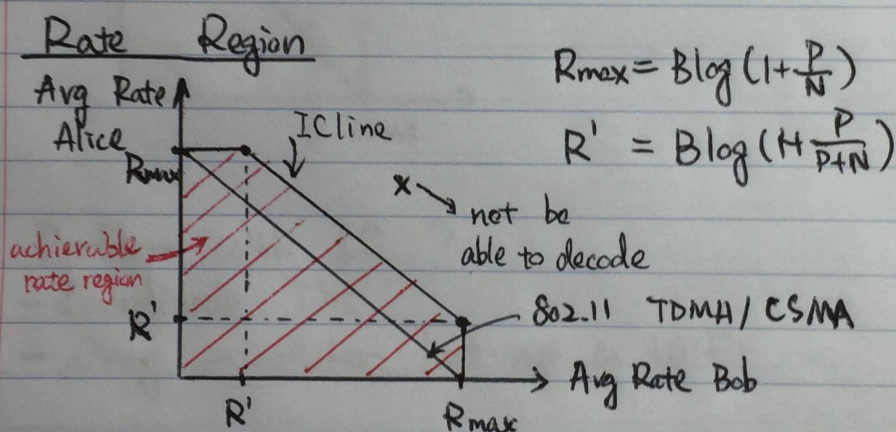 Rate Region
Rmax = B log (1+ P/N)
R' = B log (1+ P/P+N)
Avg Rate
Alice
Rmax
IC line
x
not be
able to decode
achievable
rate region
802.11 TDMA / CSMA
R'
Avg Rate Bob
R'
Rmax